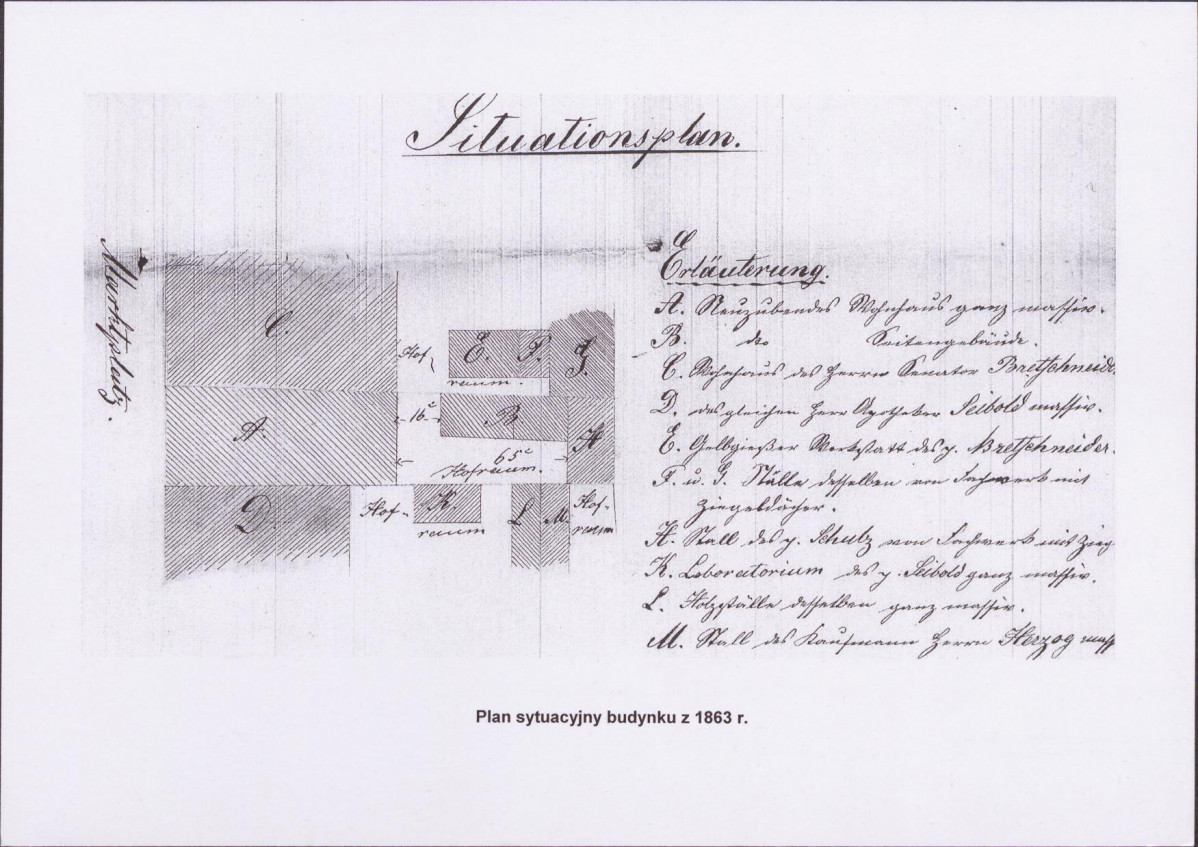 Situationsplan.
Marktplatz.
C.
Hof
raum.
E. F. G.
A.
16'
B.
H
65'
Hofraum.
D
Hof-
raum
K.
L M.
Hof-
raum
Erläuterung.
A. Neuzubendes Wohnhaus ganz massiv.
B. do Seitengebäude.
C. Wohnhaus des Herrn Senator Bretschneider
D. desgleichen Herr Apotheker Seibold massiv.
E. Gelbgießer Werkstatt des p. Bretschneider.
F. u. G. Ställe desselben von Fachwerk mit
Ziegeldächer.
H. Stall des p. Schulz von Fachwerk mit Zieg
K. Laboratorium des p. Seibold ganz massiv.
L. Holzställe desselben ganz massiv.
M. Stall des Kaufmann Herrn Herzog mass
Plan sytuacyjny budynku z 1863 r.